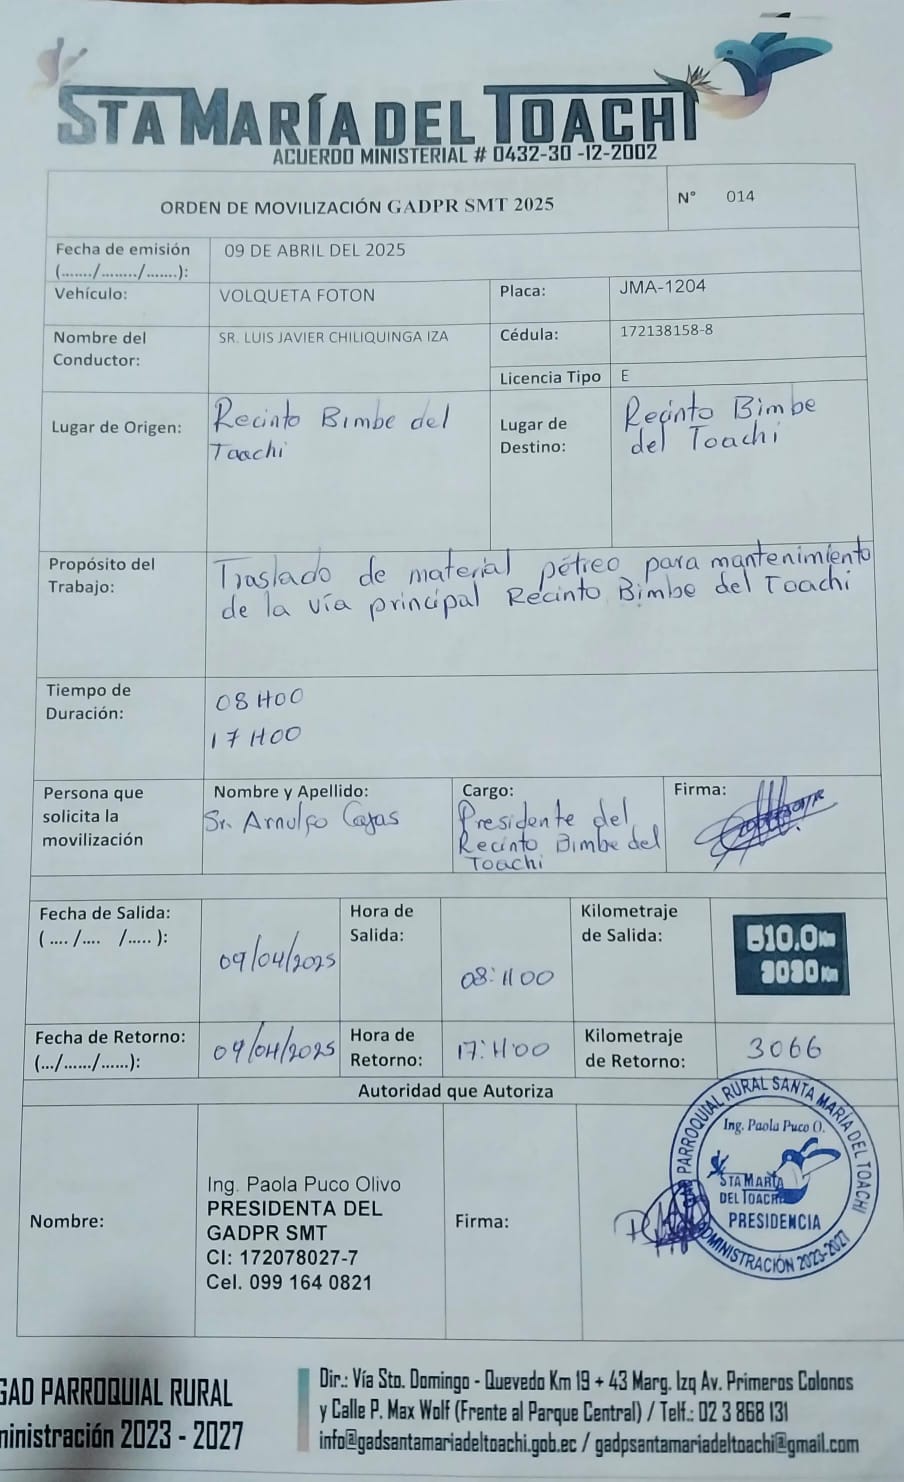 STA MARÍA DEL TOACHI
ACUERDO MINISTERIAL # 0432-30 -12-2002
ORDEN DE MOVILIZACIÓN GADPR SMT 2025
N° 014
Fecha de emisión
(......./......../.......):
09 DE ABRIL DEL 2025
Vehículo:
VOLQUETA FOTON
Placa:
JMA-1204
Nombre del
Conductor:
SR. LUIS JAVIER CHILIQUINGA IZA
Cédula:
172138158-8
Licencia Tipo
E
Lugar de Origen:
Recinto Bimbe del
Toachi
Lugar de
Destino:
Recinto Bimbe
del Toachi
Propósito del
Trabajo:
Traslado de material pétreo para mantenimiento
de la vía principal Recinto Bimbe del Toachi
Tiempo de
Duración:
08H00
17H00
Persona que
solicita la
movilización
Nombre y Apellido:
Sr. Arnulfo Cajas
Cargo:
Presidente del
Recinto Bimbe del
Toachi
Firma:
Fecha de Salida:
( .... /.... /..... ):
09/04/2025
Hora de
Salida:
08:H00
Kilometraje
de Salida:
510.0 Km
3030 Km
Fecha de Retorno:
(.../....../......):
09/04/2025
Hora de
Retorno:
17:H00
Kilometraje
de Retorno:
3066
Autoridad que Autoriza
Nombre:
Ing. Paola Puco Olivo
PRESIDENTA DEL
GADPR SMT
CI: 172078027-7
Cel. 099 164 0821
Firma:
PARROQUIAL RURAL SANTA MARÍA DEL TOACHI
Ing. Paola Puco O.
STA MARÍA
DEL TOACHI
PRESIDENCIA
ADMINISTRACIÓN 2023-2027
GAD PARROQUIAL RURAL
ministración 2023 - 2027
Dir.: Vía Sto. Domingo - Quevedo Km 19 + 43 Marg. Izq Av. Primeros Colonos
y Calle P. Max Wolf (Frente al Parque Central) / Telf.: 02 3 868 131
info@gadsantamariadeltoachi.gob.ec / gadpsantamariadeltoachi@gmail.com